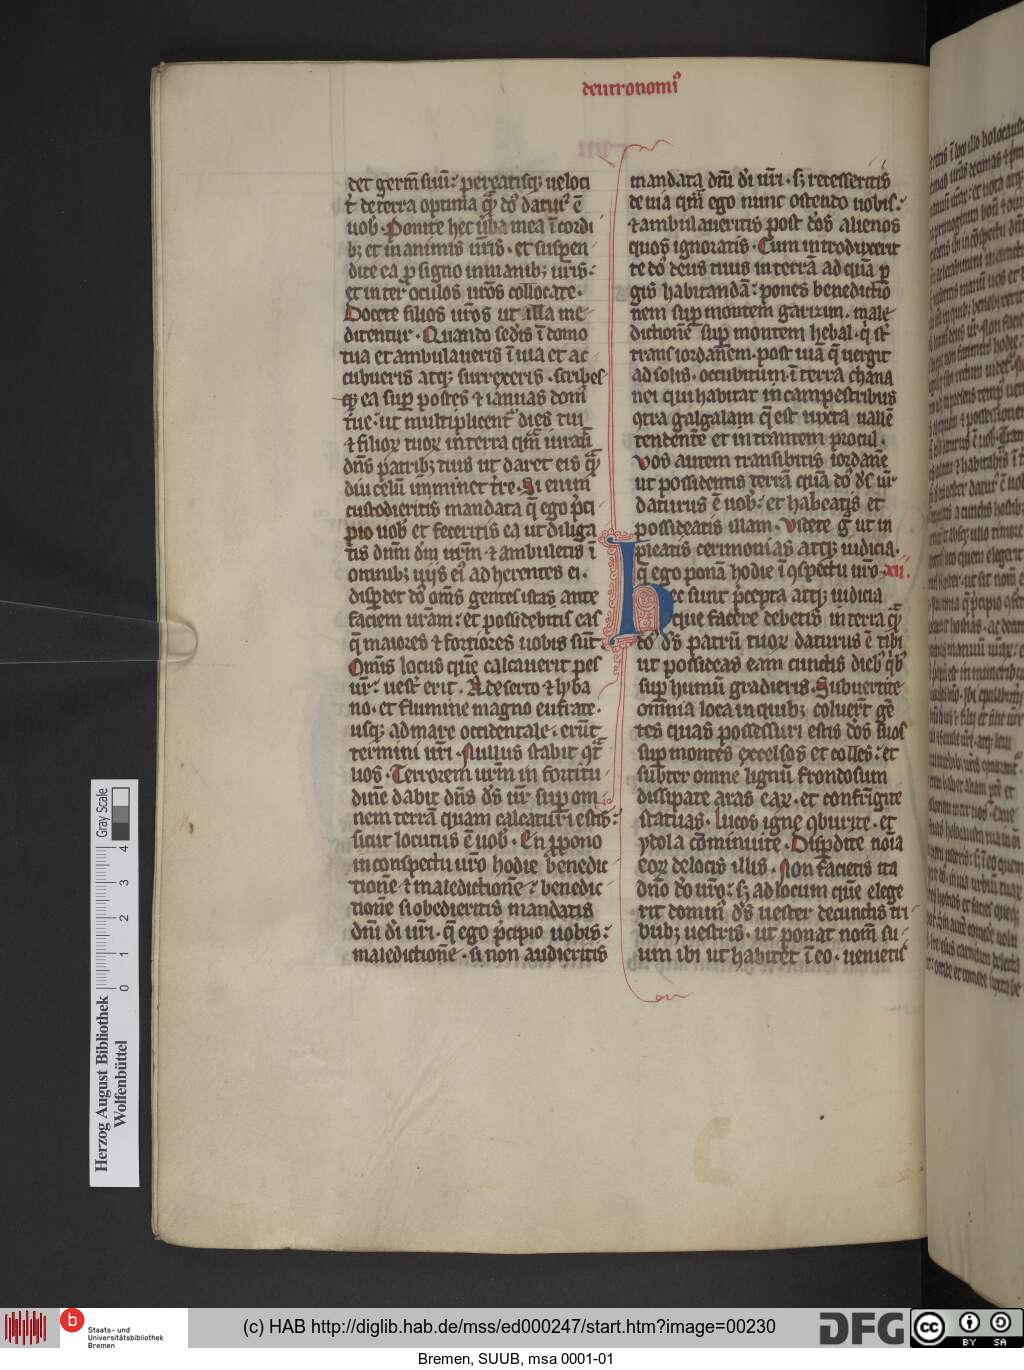 deutronomiꝰ
det germ̄ suū: pereatisqꝫ ueloci
t̄ de terra optima quā dn̄s daturꝰ ē
uob̄. Ponite hec ūba mea ī cordi
bꝫ et in animis ūris. et suspen
dite ea ꝓ signo in manibꝫ ūris:
et inter oculos ur̄os collocate.
Docete filios ur̄os ut illa me
ditentur. Quando sedis ī domo
tua et ambulaueris ī uia et ac
cubueris atqꝫ surrexeris. scribes
qꝫ ea sup̄ postes et ianuas domꝰ
tue: ut multiplicent̄ dies tui
et filioꝝ tuoꝝ in terra qm̄ iurauit
dn̄s patribꝫ tuis ut daret eis quā
diu celū imminet tr̄e. Si enim
custodieritis mandata q̄ ego p̄ci
pio uob̄ et feceritis ea ut diliga
tis dn̄m dm̄ ur̄m et ambuletis ī
omnibꝫ uijs eiꝰ adherentes ei.
disperdet dn̄s om̄s gentes istas ante
faciem ur̄am: et possidebitis eas
q̄ maiores et fortiores uobis sūt.
Om̄s locus quē calcauerit pes
ur̄: uest̄ erit. A deserto et lyba
no. et flumine magno eufrate.
usqꝫ ad mare occidentale. erūt
termini ur̄i. Nullus stabit ꝯt̄
uos. Terrorem ur̄m in fortitu
dinē dabit dn̄s ds̄ ur̄ sup̄ om
nem terrā quam calcaturi estis:
sicut locutus ē uob̄. En p̱pono
in conspectu ur̄o hodie benedic
tionē et maledictionē: benedic
tionē si obedieritis mandatis
dn̄i di ur̄i. q̄ ego p̄cipio uobis:
maledictionē. si non audieritis
mandata dn̄i di ur̄i. sꝫ recesseritis
de uia qm̄ ego nunc ostendo uobis:
et ambulaueritis post deos alienos
quos ignoratis. Cum introduxerit
te dn̄s deus tuus in terrā ad quā p̱
gis habitandā: pones benedictio
nem sup̄ montem garizim. male
dictionē sup̄ montem hebal. q̄ sūt
trans iordanem. post uiā q̄ uergit
ad solis. occubitum. ī terra chana
nei qui habitat in campestribus
ꝯtra galgalam q̄ est iuxta uallē
tendentē et intrantem procul.
Vos autem transibitis iordanē
ut possidentis terrā quā dn̄s ds̄ ur̄
daturus ē uob̄: et habeatis et
possideatis illam. Videte g̊ ut in
pleatis cerimonias atqꝫ iudicia.
q̄ ego ponā hodie ī ꝯspectu ur̄o. XII.
Hec sunt p̄cepta atqꝫ iudicia
que facere debetis in terra quā
dn̄s ds̄ patrū tuoꝝ daturus ē tibi
ut possideas eam cunctis diebꝰ qibꝰ
sup̄ humū gradieris. Subuertite
omnia loca in quibꝫ coluer̄t gē
tes quas possessuri estis deos suos
sup̄ montes excelsos et colles: et
subter omne lignū frondosum
dissipate aras eaꝝ. et confringite
statuas. lucos igne ꝯburite. et
ydola cōminuite. Disperdite noīa
eoꝝ de locis illis. Non facietis ita
dn̄o deo ur̄o: sꝫ ad locum quē elege
rit dominꝰ ds̄ uester de cunctis tri
bubꝫ uestris. ut ponat nom̄ su
um ibi ut habitet ī eo. uenietis
Herzog August Bibliothek
Wolfenbüttel
0 1 2 3 4
Gray Scale
b
Staats- und
Universitätsbibliothek
Bremen
(c) HAB http://diglib.hab.de/mss/ed000247/start.htm?image=00230
DFG
cc
BY SA
Bremen, SUUB, msa 0001-01